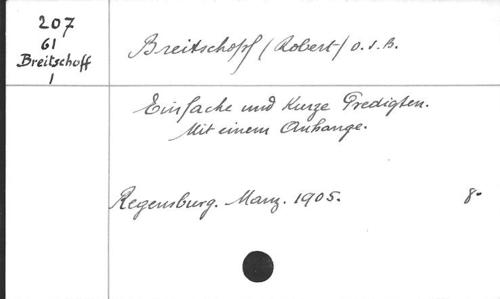 207
61
Breitschoff
1
Breitschopf (Robert) O.S.B.
Einfache und kurze Predigten.
Mit einem Anhange.
Regensburg. Manz. 1905. 8.